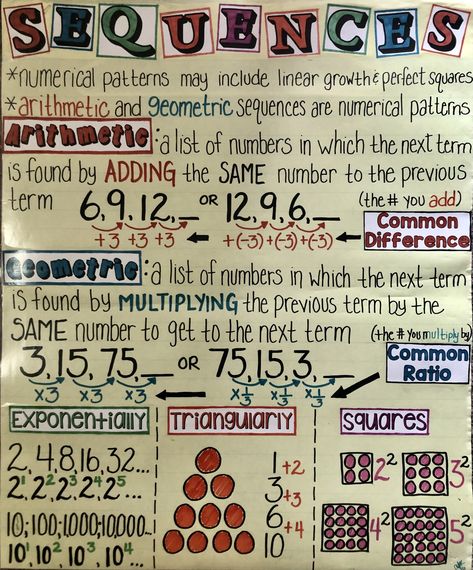 SEQUENCES
*numerical patterns may include linear growth & perfect squares
*arithmetic and geometric sequences are numerical patterns
Arithmetic: a list of numbers in which the next term
is found by ADDING the SAME number to the previous
term 6,9,12,_ OR 12,9,6,_ (the # you add)
+3 +3 +3 +(-3) +(-3) +(-3) Common
Difference
Geometric: a list of numbers in which the next term
is found by MULTIPLYING the previous term by the
SAME number to get to the next term (the # you multiply by)
3,15,75,_ OR 75,15,3,_ Common
Ratio
x3 x3 x3 x⅓ x⅓ x⅓
Exponentially
2,4,8,16,32...
2¹,2²,2³,2⁴,2⁵...
10,100,1,000,10,000...
10¹,10²,10³,10⁴...
Triangularly
1 +2
3 +3
6 +4
10
Squares
2² 3²
4² 5²